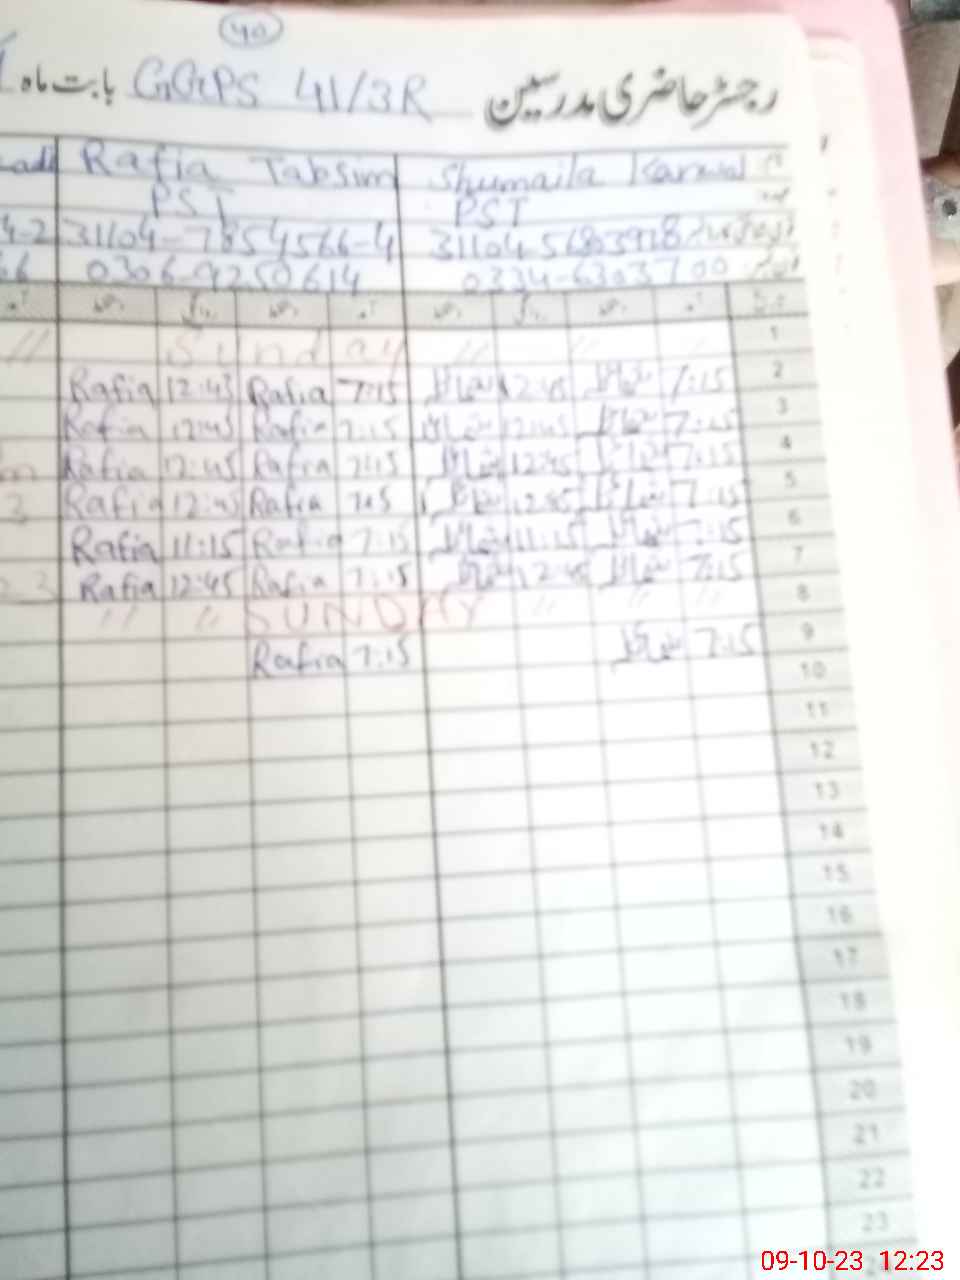 40
رجسٹر حاضری مدرسین GGPS 41/3R بابت ماہ
Rafia Tabsim Shumaila Kanwal
PST PST
4-2 31104-7854566-4 31104 56803928
66 0306-9250614 0334-6303700
// Sunday // // // 1
Rafia 12:45 Rafia 7:15 شمائلہ 12:45 شمائلہ 7:15 2
Rafia 12:45 Rafia 7:15 شمائلہ 12:45 شمائلہ 7:15 3
Rafia 12:45 Rafia 7:15 شمائلہ 12:45 شمائلہ 7:15 4
Rafia 12:45 Rafia 7:15 شمائلہ 12:45 شمائلہ 7:15 5
Rafia 11:15 Rafia 7:15 شمائلہ 11:15 شمائلہ 7:15 6
Rafia 12:45 Rafia 7:15 شمائلہ 12:45 شمائلہ 7:15 7
// // SUNDAY // // // 8
Rafia 7:15 شمائلہ 7:15 9
10
11
12
13
14
15
16
17
18
19
20
21
22
23
09-10-23 12:23